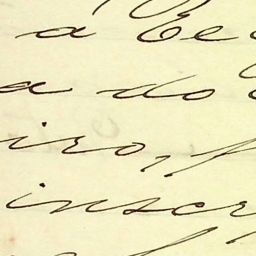 a Ee
a do
iro, f
inscr